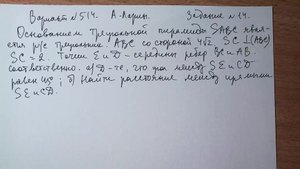 Вариант №514. А. Ларин. Задание №14.
Основанием треугольной пирамиды SABC явля-
ется р/с треугольник ABC со стороной 4√2. SC ⊥ (ABC)
SC = 2. Точки E и D - середины ребер BC и AB.
соответственно. а) Д-те, что угол между SE и CD
равен 45; б) Найти расстояние между прямыми
SE и CD.